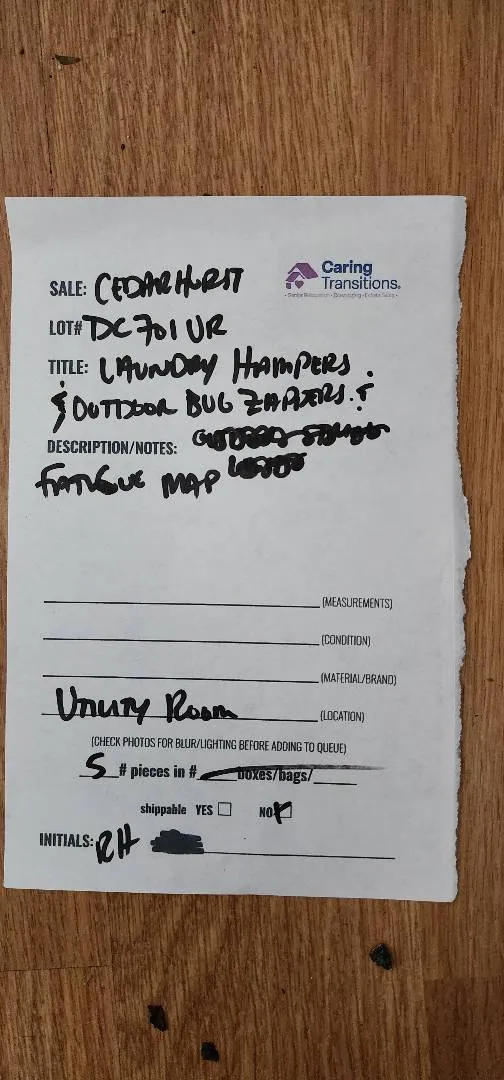 Caring
Transitions.
Senior Relocation • Downsizing • Estate Sales
SALE: CEDARHURST
LOT# DC701UR
TITLE: LAUNDRY HAMPERS.
& OUTDOOR BUG ZAPPERS. &
DESCRIPTION/NOTES:
FATIGUE MAP
(MEASUREMENTS)
(CONDITION)
(MATERIAL/BRAND)
UTILITY ROOM (LOCATION)
(CHECK PHOTOS FOR BLUR/LIGHTING BEFORE ADDING TO QUEUE)
5 # pieces in # boxes/bags/
shippable YES NO
INITIALS: RH